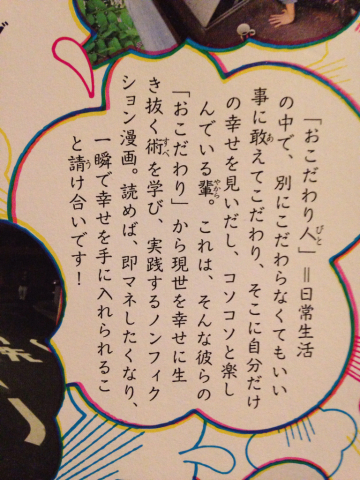 「おこだわり人」＝日常生活
の中で、別にこだわらなくてもいい
事に敢えてこだわり、そこに自分だけ
の幸せを見いだし、コソコソと楽し
んでいる輩。これは、そんな彼らの
「おこだわり」から現世を幸せに生
き抜く術を学び、実践するノンフィク
ション漫画。読めば、即マネしたくなり、
一瞬で幸せを手に入れられるこ
と請け合いです！